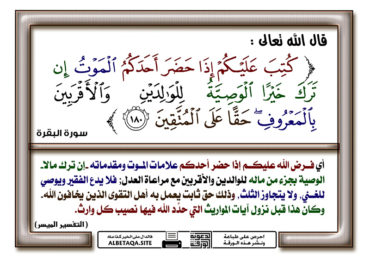 قال الله تعالى :
﴿ كُتِبَ عَلَيْكُمْ إِذَا حَضَرَ أَحَدَكُمُ الْمَوْتُ إِن
تَرَكَ خَيْرًا الْوَصِيَّةُ لِلْوَالِدَيْنِ وَالْأَقْرَبِينَ
بِالْمَعْرُوفِ ۖ حَقًّا عَلَى الْمُتَّقِينَ ﴿١٨٠﴾ ﴾
سورة البقرة
أي فـرض الله عليكـم إذا حضر أحدكم علامات المـوت ومقدماته ـ إن ترك مالا ـ
الوصية بجزء من ماله للوالدين والأقربين مع مراعاة العدل؛ فلا يدع الفقير ويوصي
للغني، ولا يتجاوز الثلث، وذلك حق ثابت يعمل به أهل التقوى الذين يخافون الله.
وكان هذا قبل نزول آيات المواريث التي حدَّد الله فيها نصيب كل وارث.
( التفسير الميسر )
احرص على طباعة
ونشر هذه الورقة
ALBETAQA.SITE